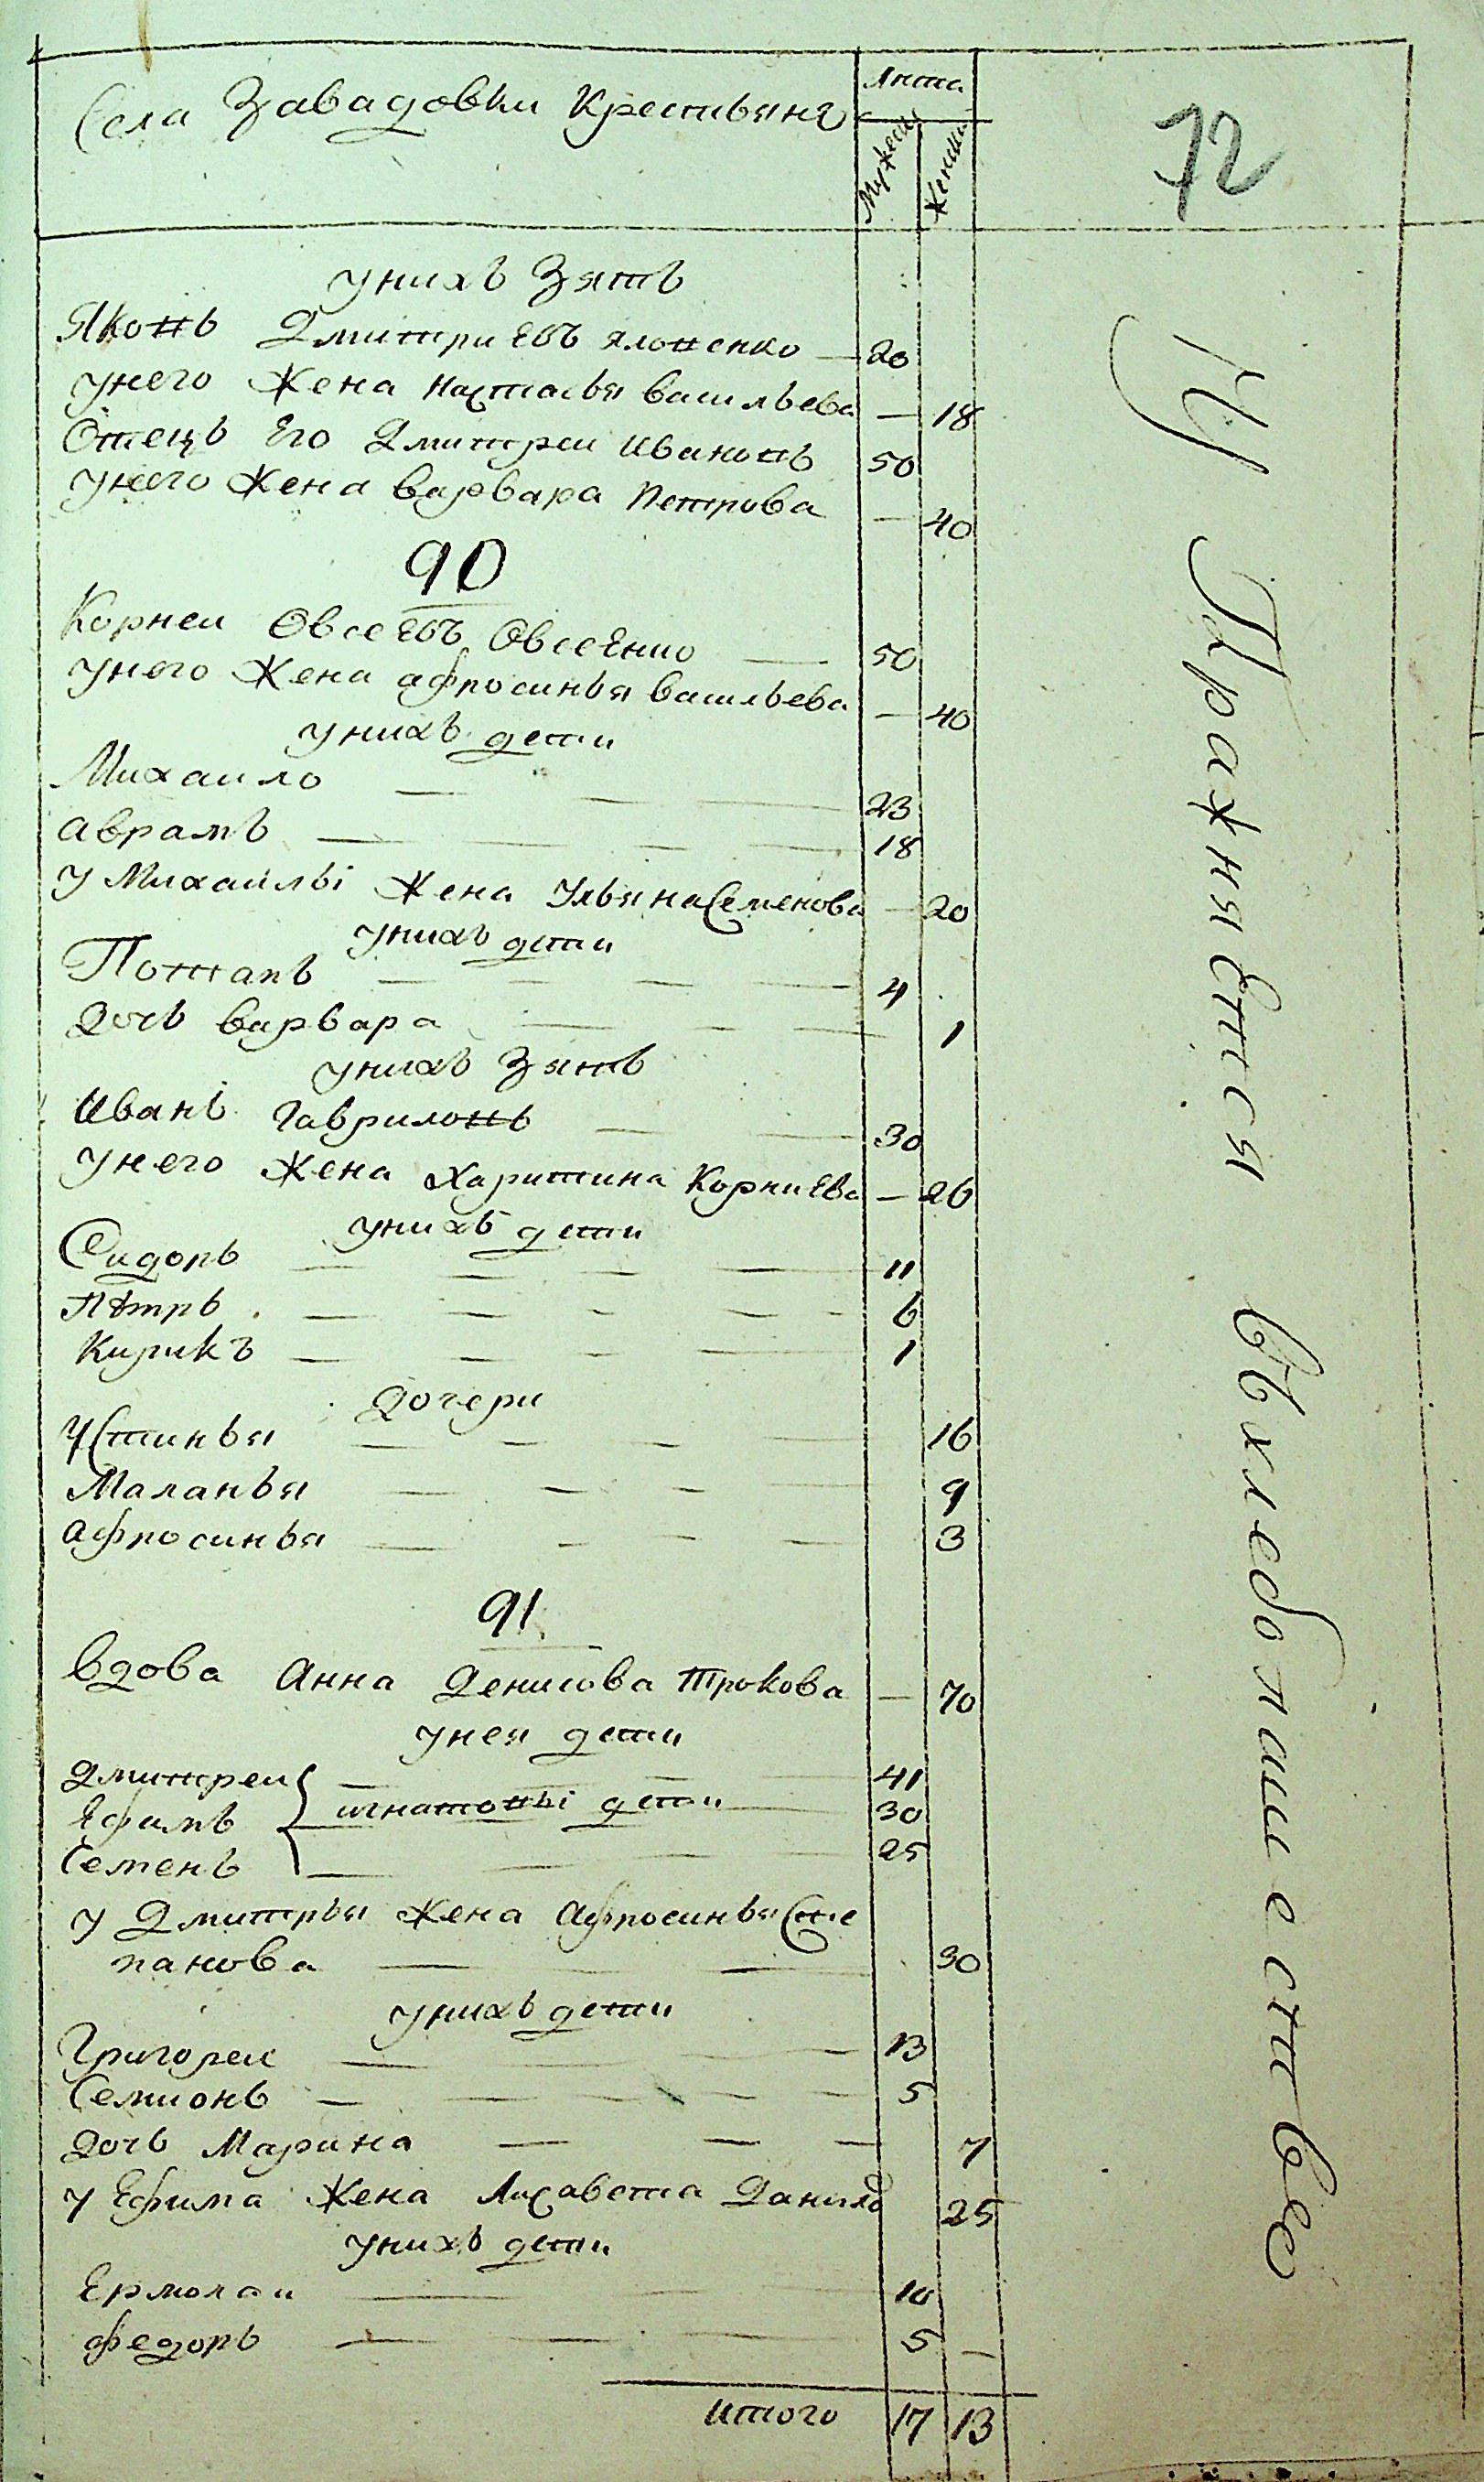 Села Завадовки Крестьянѣ
Лѣта
Мужеск
Женски
72
унихъ Зять
Яковъ Дмитриевъ Яловенко — 20
унего Жена Настасья васильева — 18
Отецъ Его Дмитреи Ивановъ 50
унего Жена варвара Петрова — 40
90
Корнеи Овсеевъ Овсеенко — 50
унего Жена афросинья васильева — 40
унихъ дети
Михаило — — — 23
аврамъ — — — — 18
у Михаилы Жена Ульяна Семенова — 20
унихъ дети
Потапъ — — — — 4
Дочь варвара — — — 1
унихъ Зять
Иванъ Гавриловъ — — 30
унего Жена Харитина Корниева — 26
унихъ дети
Сидоръ — — — — 11
Петръ — — — — 6
Кирикъ — — — — 1
Дочери
Устинья — — — — 16
Маланья — — — — 9
афросинья — — — — 3
91
вдова Анна Денисова Трокова — 70
унея дети
Дмитреи — — — 41
Ефимъ игнатовы дети — 30
Семенъ — — — — 25
у Дмитрья Жена Афросинья Сте
панова — — — 30
унихъ дети
Григореи — — — — 13
Семионъ — — — — 5
Дочь Марина — — — 7
у Ефима Жена Лисавета Данило 25
унихъ дети
Ермолаи — — — 10
федоръ — — — — 5 —
итого 17 13
Упражняетися вхлебопашестве